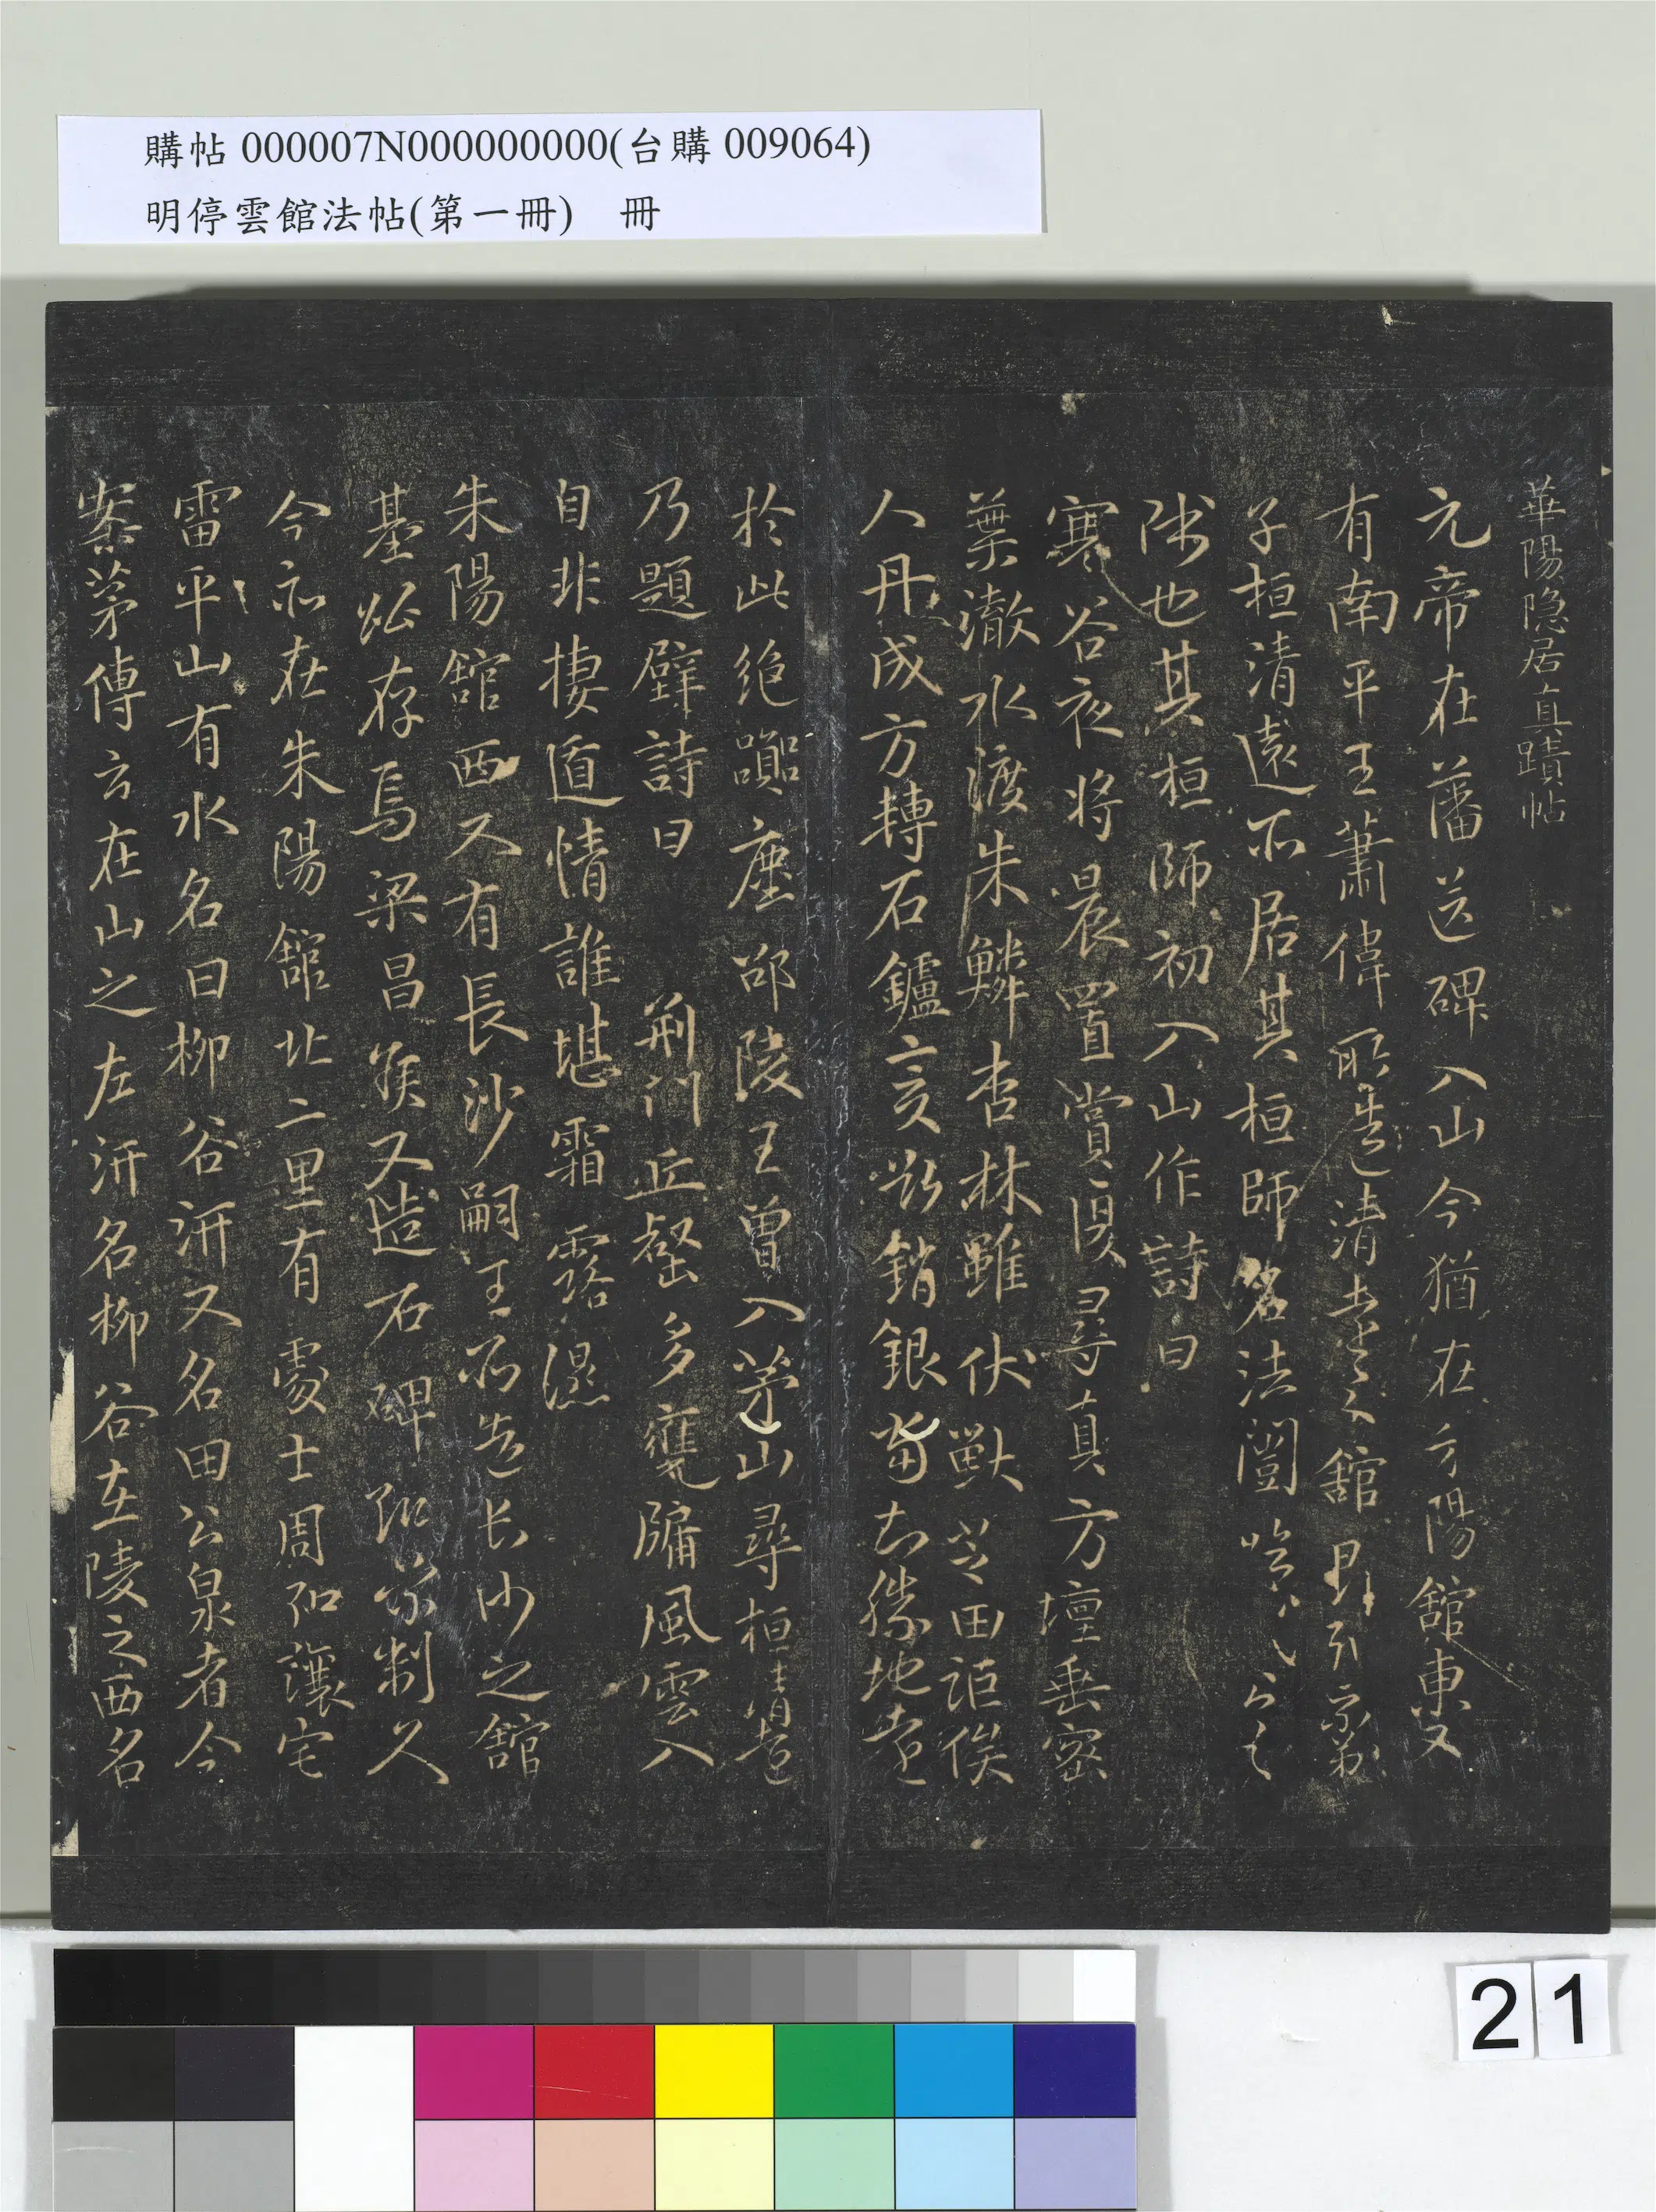 購帖 000007N000000000(台購 009064)
明停雲館法帖(第一冊) 冊
華陽隐居真蹟帖
元帝在藩送碑入山今猶在方陽舘東又
有南平王蕭偉所造清遠之舘
子桓清遠所居其桓師名法闓
陟也其桓師初入山作詩曰
寒谷夜將晨置賞復尋真方壇垂密
葉澈水渡朱鱗杏林雖伏獸芝田詎俟
人丹成方轉石鑪變欲銷銀當知勝地遠
於此絶囂塵邵陵王曾入茅山尋桓清遠
乃題壁詩曰 荊門丘壑多甕牖風雲入
自非棲遁情誰堪霜露濕
朱陽舘西又有長沙嗣王所造长沙之舘
基必存焉梁昌侯又造石碑 制久
今亦在朱陽舘北二里有 處士周弘讓宅
雷平山有水名曰柳谷汧又名田公泉者今
案茅傳云在山之左汧名柳谷在陵之西名
21